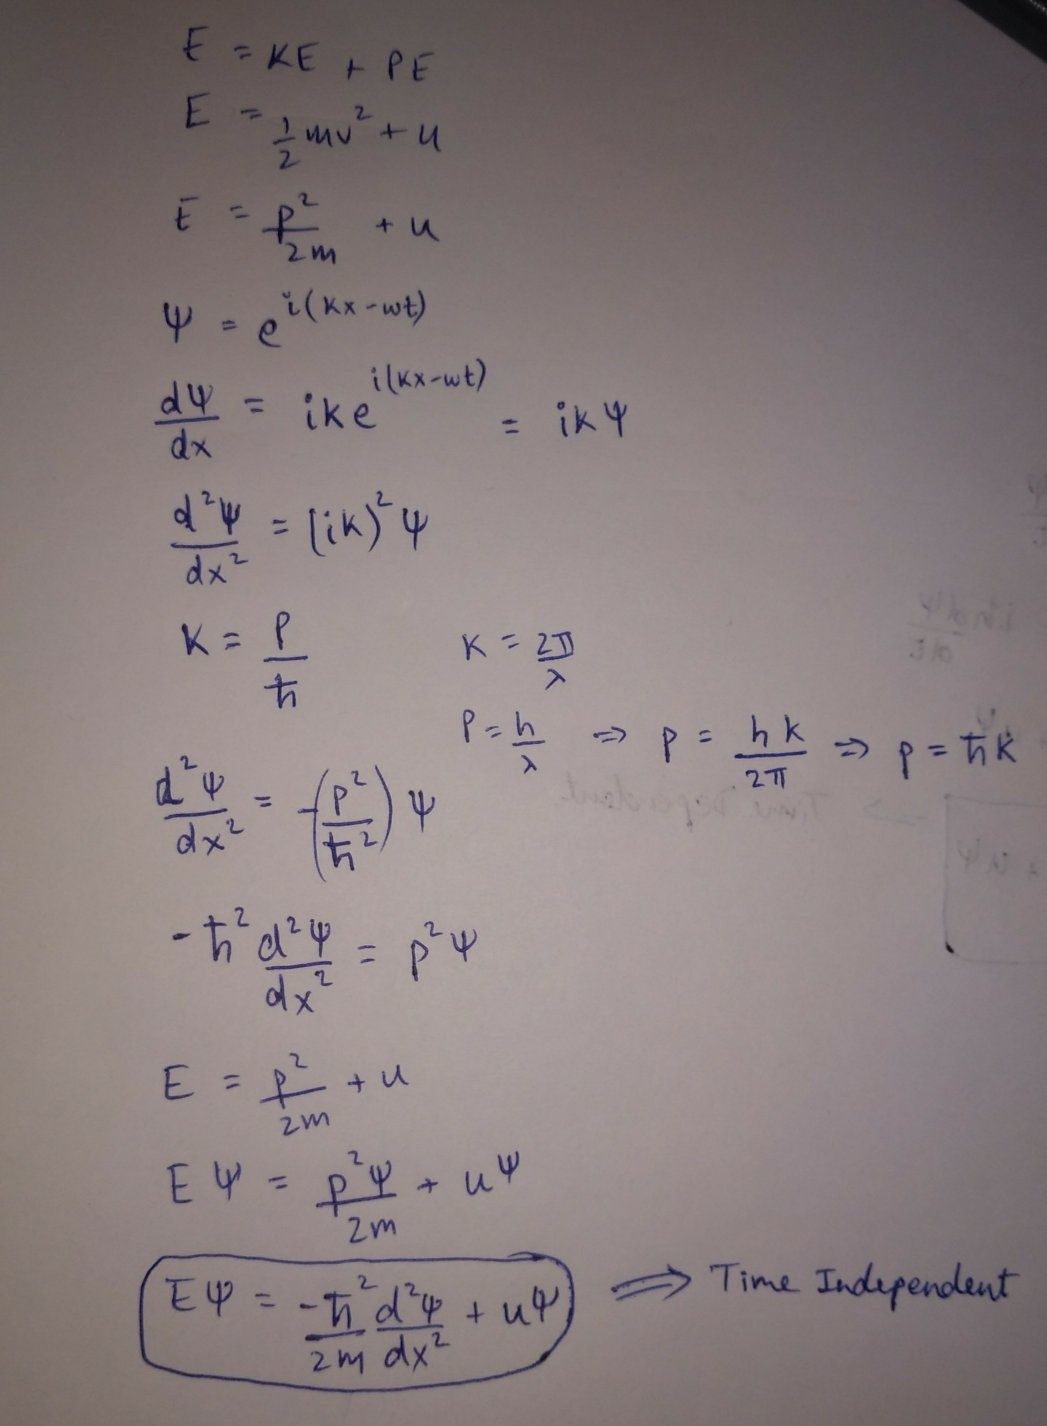 E = KE + PE
E = 1/2 mv² + u
E = p²/2m + u
Ψ = e^i(kx-wt)
dΨ/dx = ike^i(kx-wt) = ikΨ
d²Ψ/dx² = (ik)²Ψ
K = P/ħ    K = 2π/λ
P = h/λ ⇒ p = hk/2π ⇒ p = ħk
d²Ψ/dx² = -(p²/ħ²)Ψ
-ħ² d²Ψ/dx² = p²Ψ
E = p²/2m + u
EΨ = p²Ψ/2m + uΨ
EΨ = -ħ²/2m d²Ψ/dx² + uΨ ⇒ Time Independent